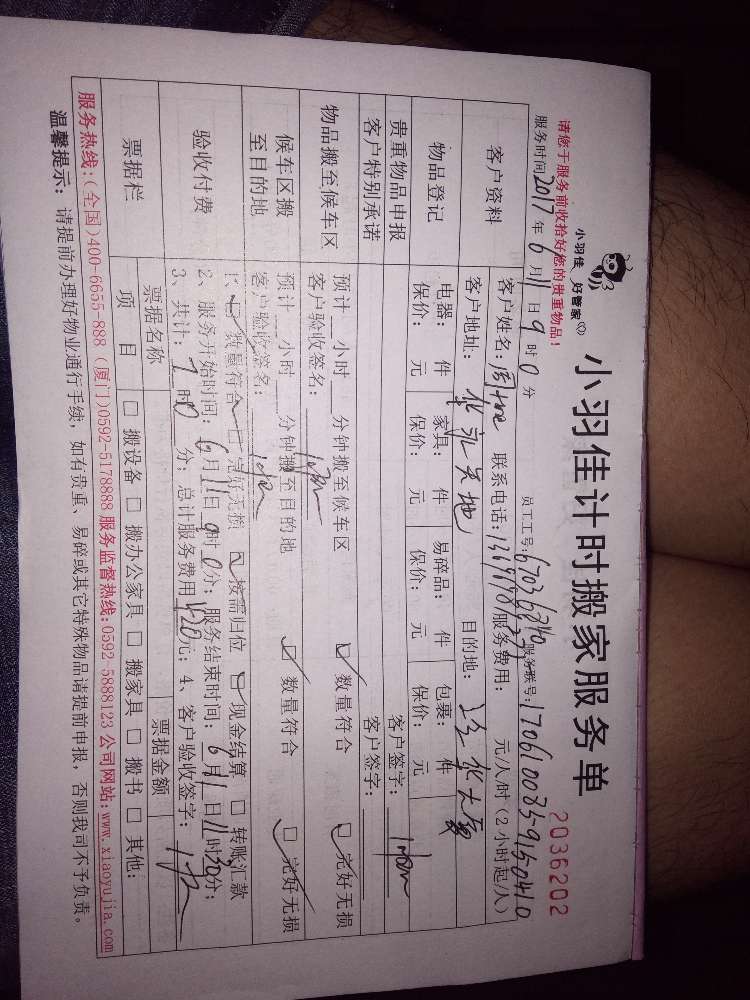 小羽佳 好管家
小羽佳计时搬家服务单
2036202
请您于服务前收拾好您的贵重物品!
员工工号: 服务联号:
服务时间2017年6月11日9时0分
客户资料
客户姓名: 联系电话: 服务费用: 元/人/时(2小时起/人)
客户地址: 华永天地 目的地:
物品登记
电器: 件 家具: 件 易碎品: 件 包裹: 件
保价: 元 保价: 元 保价: 元 保价: 元
贵重物品申报 客户签字:
客户特别承诺 客户签字:
物品搬至候车区
预计 小时 分钟搬至候车区 ☑ 数量符合 ☑ 完好无损
客户验收签名:
候车区搬至目的地
预计 小时 分钟搬至目的地 ☑ 数量符合 ☑ 完好无损
客户验收签名:
验收付费
1、☑ 数量符合 ☑ 完好无损 ☑ 按需归位 ☑ 现金结算 □ 转账汇款
2、服务开始时间: 6月11日9时0分; 服务结束时间: 6月11日11时30分;
3、共计: 时 分; 总计服务费用 420元; 4、客户验收签字:
票据栏
票据名称 票据金额
项目 □ 搬设备 □ 搬办公家具 □ 搬家具 □ 搬书 □ 其他:
服务热线:(全国)400-6655-888 (厦门)0592-5178888 服务监督热线:0592-5888123 公司网站:www.xiaoyujia.com
温馨提示: 请提前办理好物业通行手续, 如有贵重、易碎或其它特殊物品请提前申报, 否则我司不予负责。